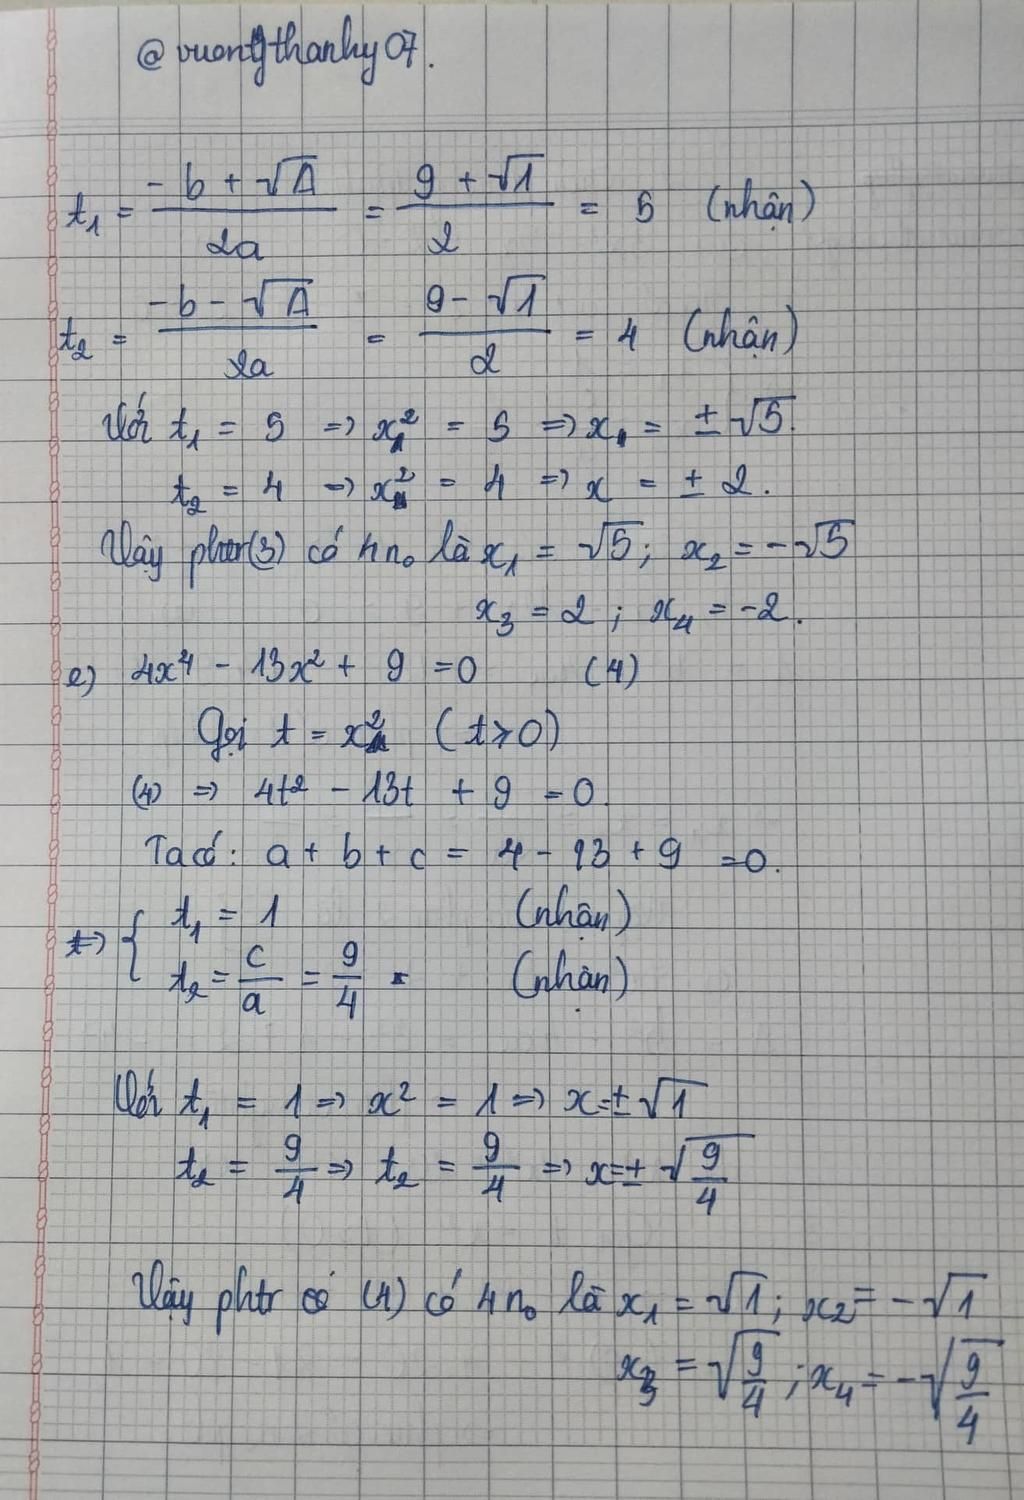 @vuongthanhy07.
t₁ = (-b + √Δ)/(2a) = (9 + √1)/2 = 5 (nhận)
t₂ = (-b - √Δ)/(2a) = (9 - √1)/2 = 4 (nhận)
Với t₁ = 5 => x² = 5 => x = ± √5.
t₂ = 4 => x² = 4 => x = ± 2.
Vậy phtr(3) có 4 n₀ là x₁ = √5; x₂ = -√5
x₃ = 2; x₄ = -2.
e) 4x⁴ - 13x² + 9 = 0 (4)
Gọi t = x² (t ≥ 0)
(4) => 4t² - 13t + 9 = 0.
Ta có: a + b + c = 4 - 13 + 9 = 0.
=> { t₁ = 1 (nhận)
t₂ = c/a = 9/4 (nhận)
Với t₁ = 1 => x² = 1 => x = ± √1
t₂ = 9/4 => t₂ = 9/4 => x = ± √(9/4)
Vậy phtr có (4) có 4 n₀ là x₁ = √1; x₂ = -√1
x₃ = √(9/4); x₄ = -√(9/4)